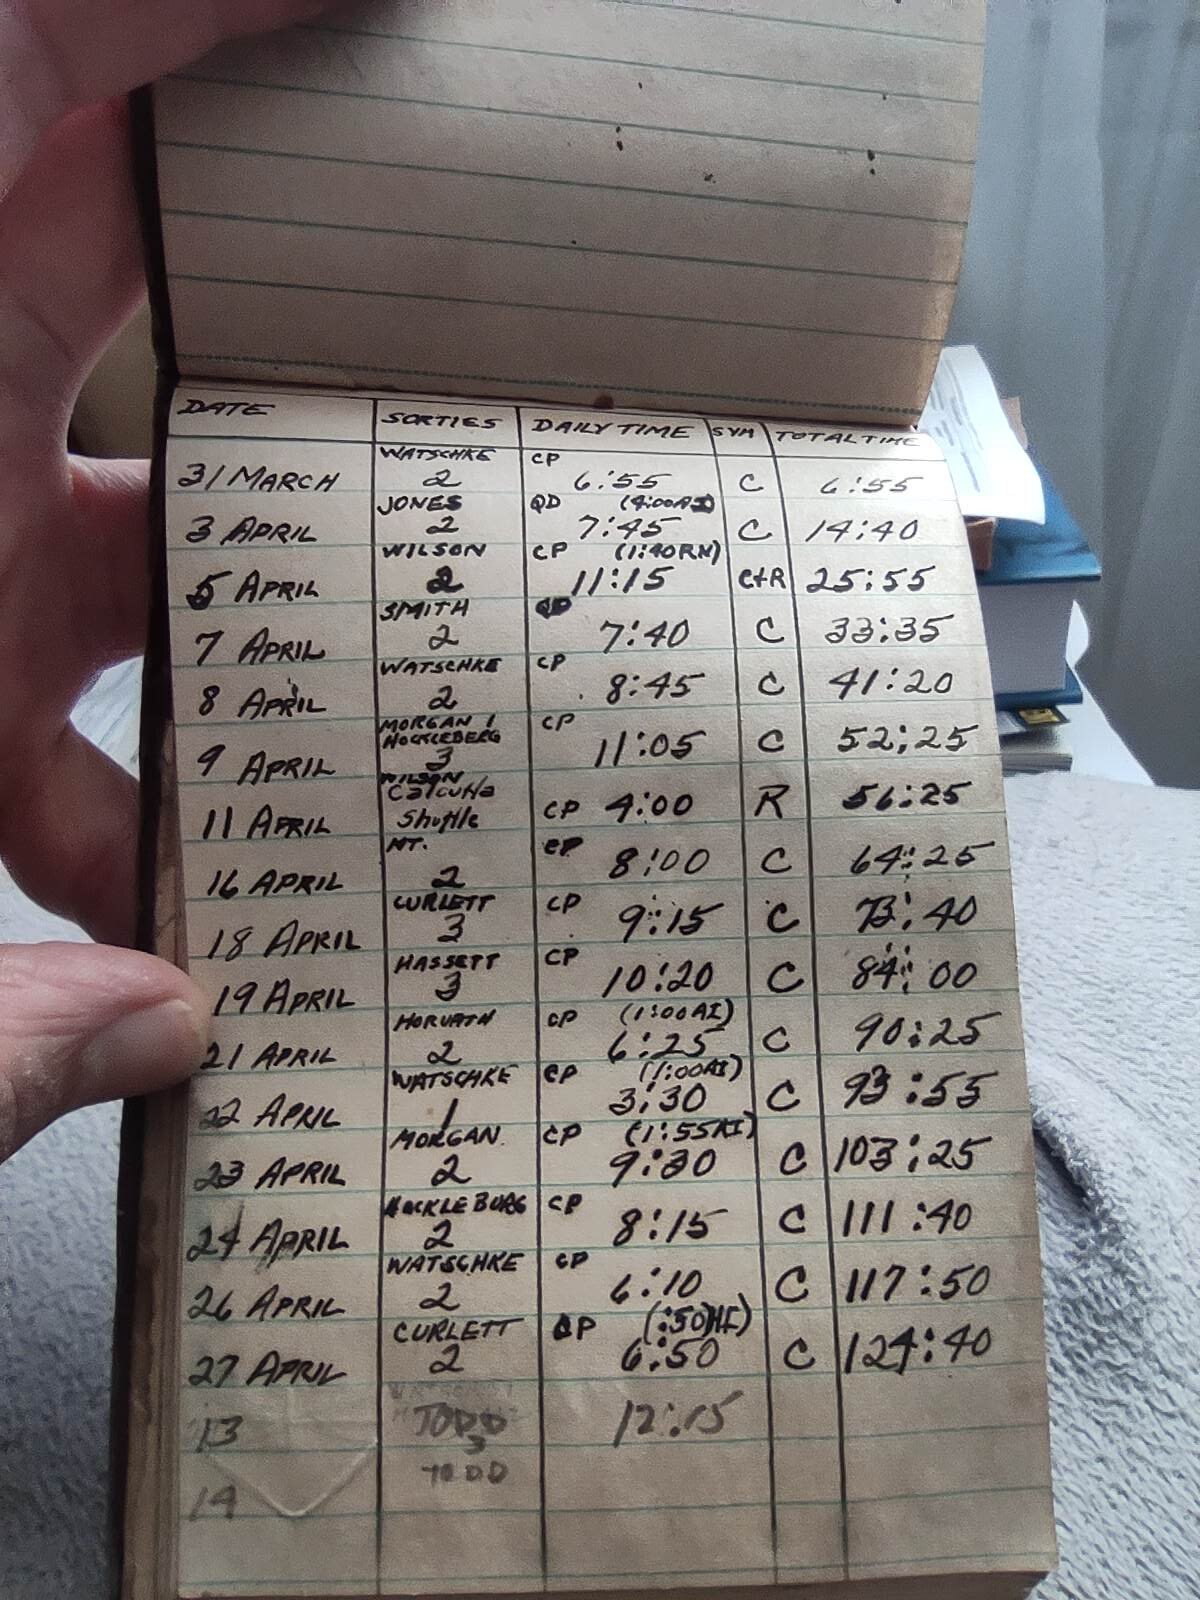 DATE SORTIES DAILY TIME SYM TOTAL TIME
WATSCHKE CP
31 MARCH 2 6:55 C 6:55
JONES QD (4:00AI)
3 APRIL 2 7:45 C 14:40
WILSON CP (1:40RN)
5 APRIL 2 11:15 C+R 25:55
SMITH
7 APRIL 2 7:40 C 33:35
WATSCHKE CP
8 APRIL 2 8:45 C 41:20
MORGAN 1 CP
HOCKLEBERG
9 APRIL 3 11:05 C 52:25
WILSON
Calcutta
11 APRIL Shuttle CP 4:00 R 56:25
NT. CP
16 APRIL 2 8:00 C 64:25
CURLETT CP
18 APRIL 3 9:15 C 73:40
HASSETT CP
19 APRIL 3 10:20 C 84:00
HORVATH CP (1:00AI)
21 APRIL 2 6:25 C 90:25
WATSCHKE CP (1:00AI)
22 APRIL 1 3:30 C 93:55
MORGAN CP (1:55AI)
23 APRIL 2 9:30 C 103:25
HOCKLEBURG CP
24 APRIL 2 8:15 C 111:40
WATSCHKE CP
26 APRIL 2 6:10 C 117:50
CURLETT CP (:50HI)
27 APRIL 2 6:50 C 124:40
TODD
13 3 12:15
TODD
14